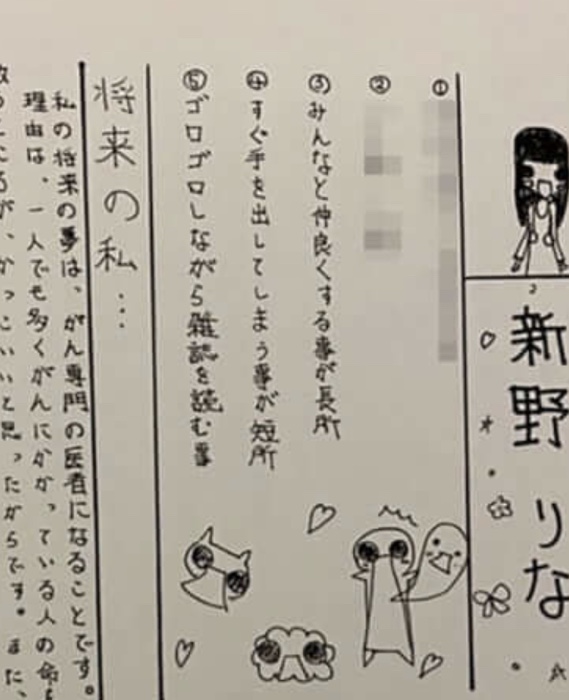 新野 りな
①
②
③みんなと仲良くする事が長所
④すぐ手を出してしまう事が短所
⑤ゴロゴロしながら雑誌を読む事
将来の私…
私の将来の夢は、がん専門の医者になることです。
理由は、一人でも多くがんにかかっている人の命
かっこいいと思ったからです。また、